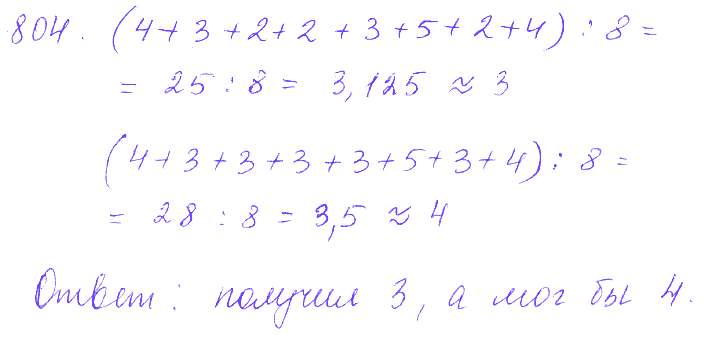 804. (4+3+2+2+3+5+2+4) : 8 =
= 25 : 8 = 3,125 ≈ 3
(4+3+3+3+3+5+3+4) : 8 =
= 28 : 8 = 3,5 ≈ 4
Ответ: получил 3, а мог бы 4.